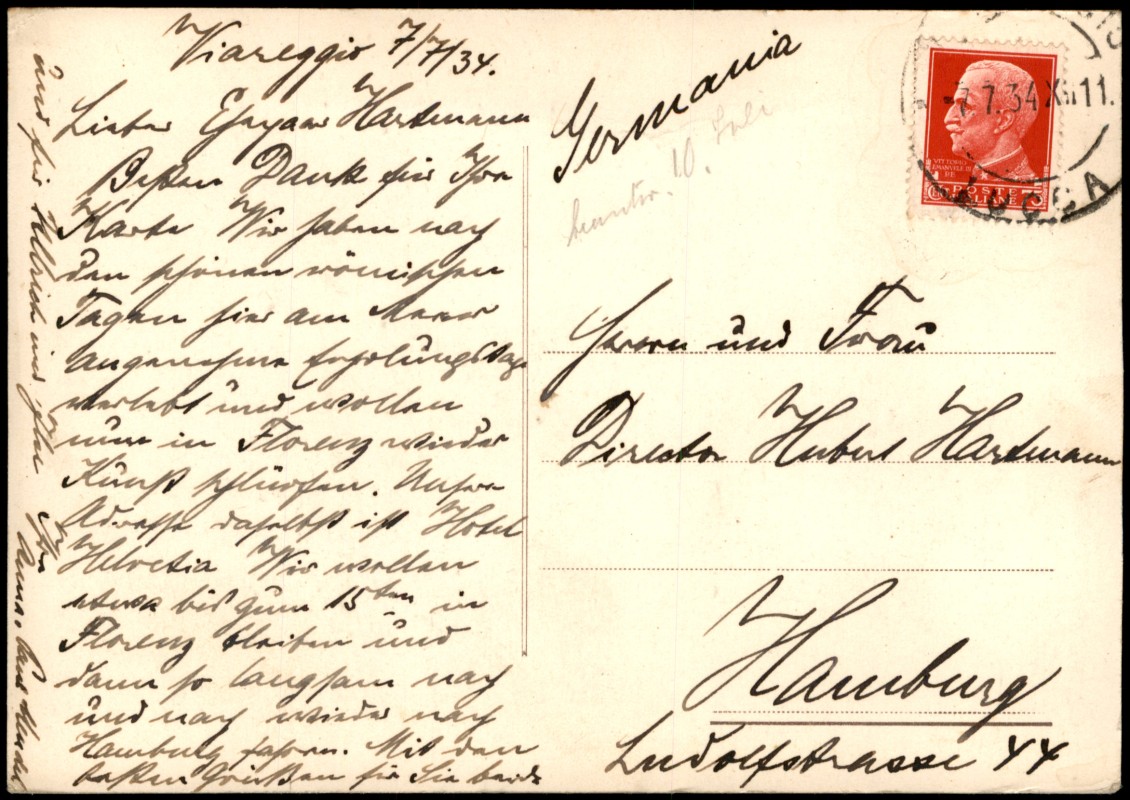 Viareggio 7/7/34.
Lieber Hartmann
Besten Dank für Ihre
Karte Wir haben nach
den schönen römischen
Tagen hier am Meere
angenehme Erholungstage
verlebt und wollen
nun in Florenz wieder
Kunst schlürfen. Unsere
Adresse daselbst ist Hotel
Helvetia Wir wollen
etwa bis zum 15ten in
Florenz bleiben und
dann so langsam nach
und nach wieder nach
Hamburg fahren. Mit den
besten Grüßen für Sie beide
und für und
Ihre
Anna
Germania
10. Juli
Herrn und Frau
Director Hubert Hartmann
Hamburg
Ludolfstrasse 44
7.7.34 XII 11.
LUCCA
VITTORIO
EMANUELE III
RE
POSTE
ITALIANE
75